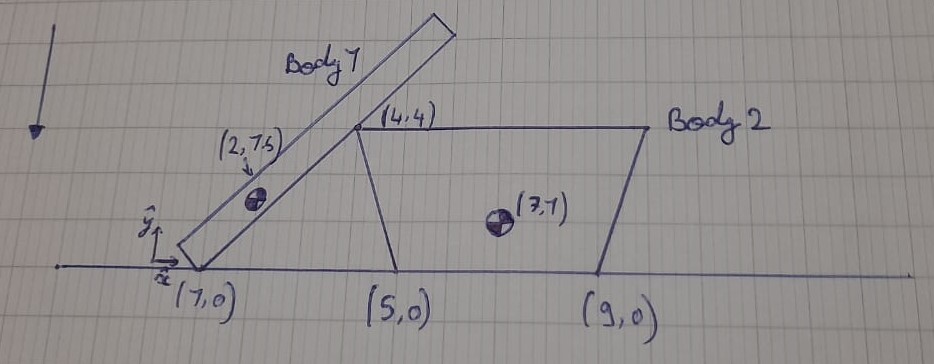 Body 1
(4,4)
Body 2
(2,1.5)
(7,1)
ŷ
x̂
(1,0)
(5,0)
(9,0)